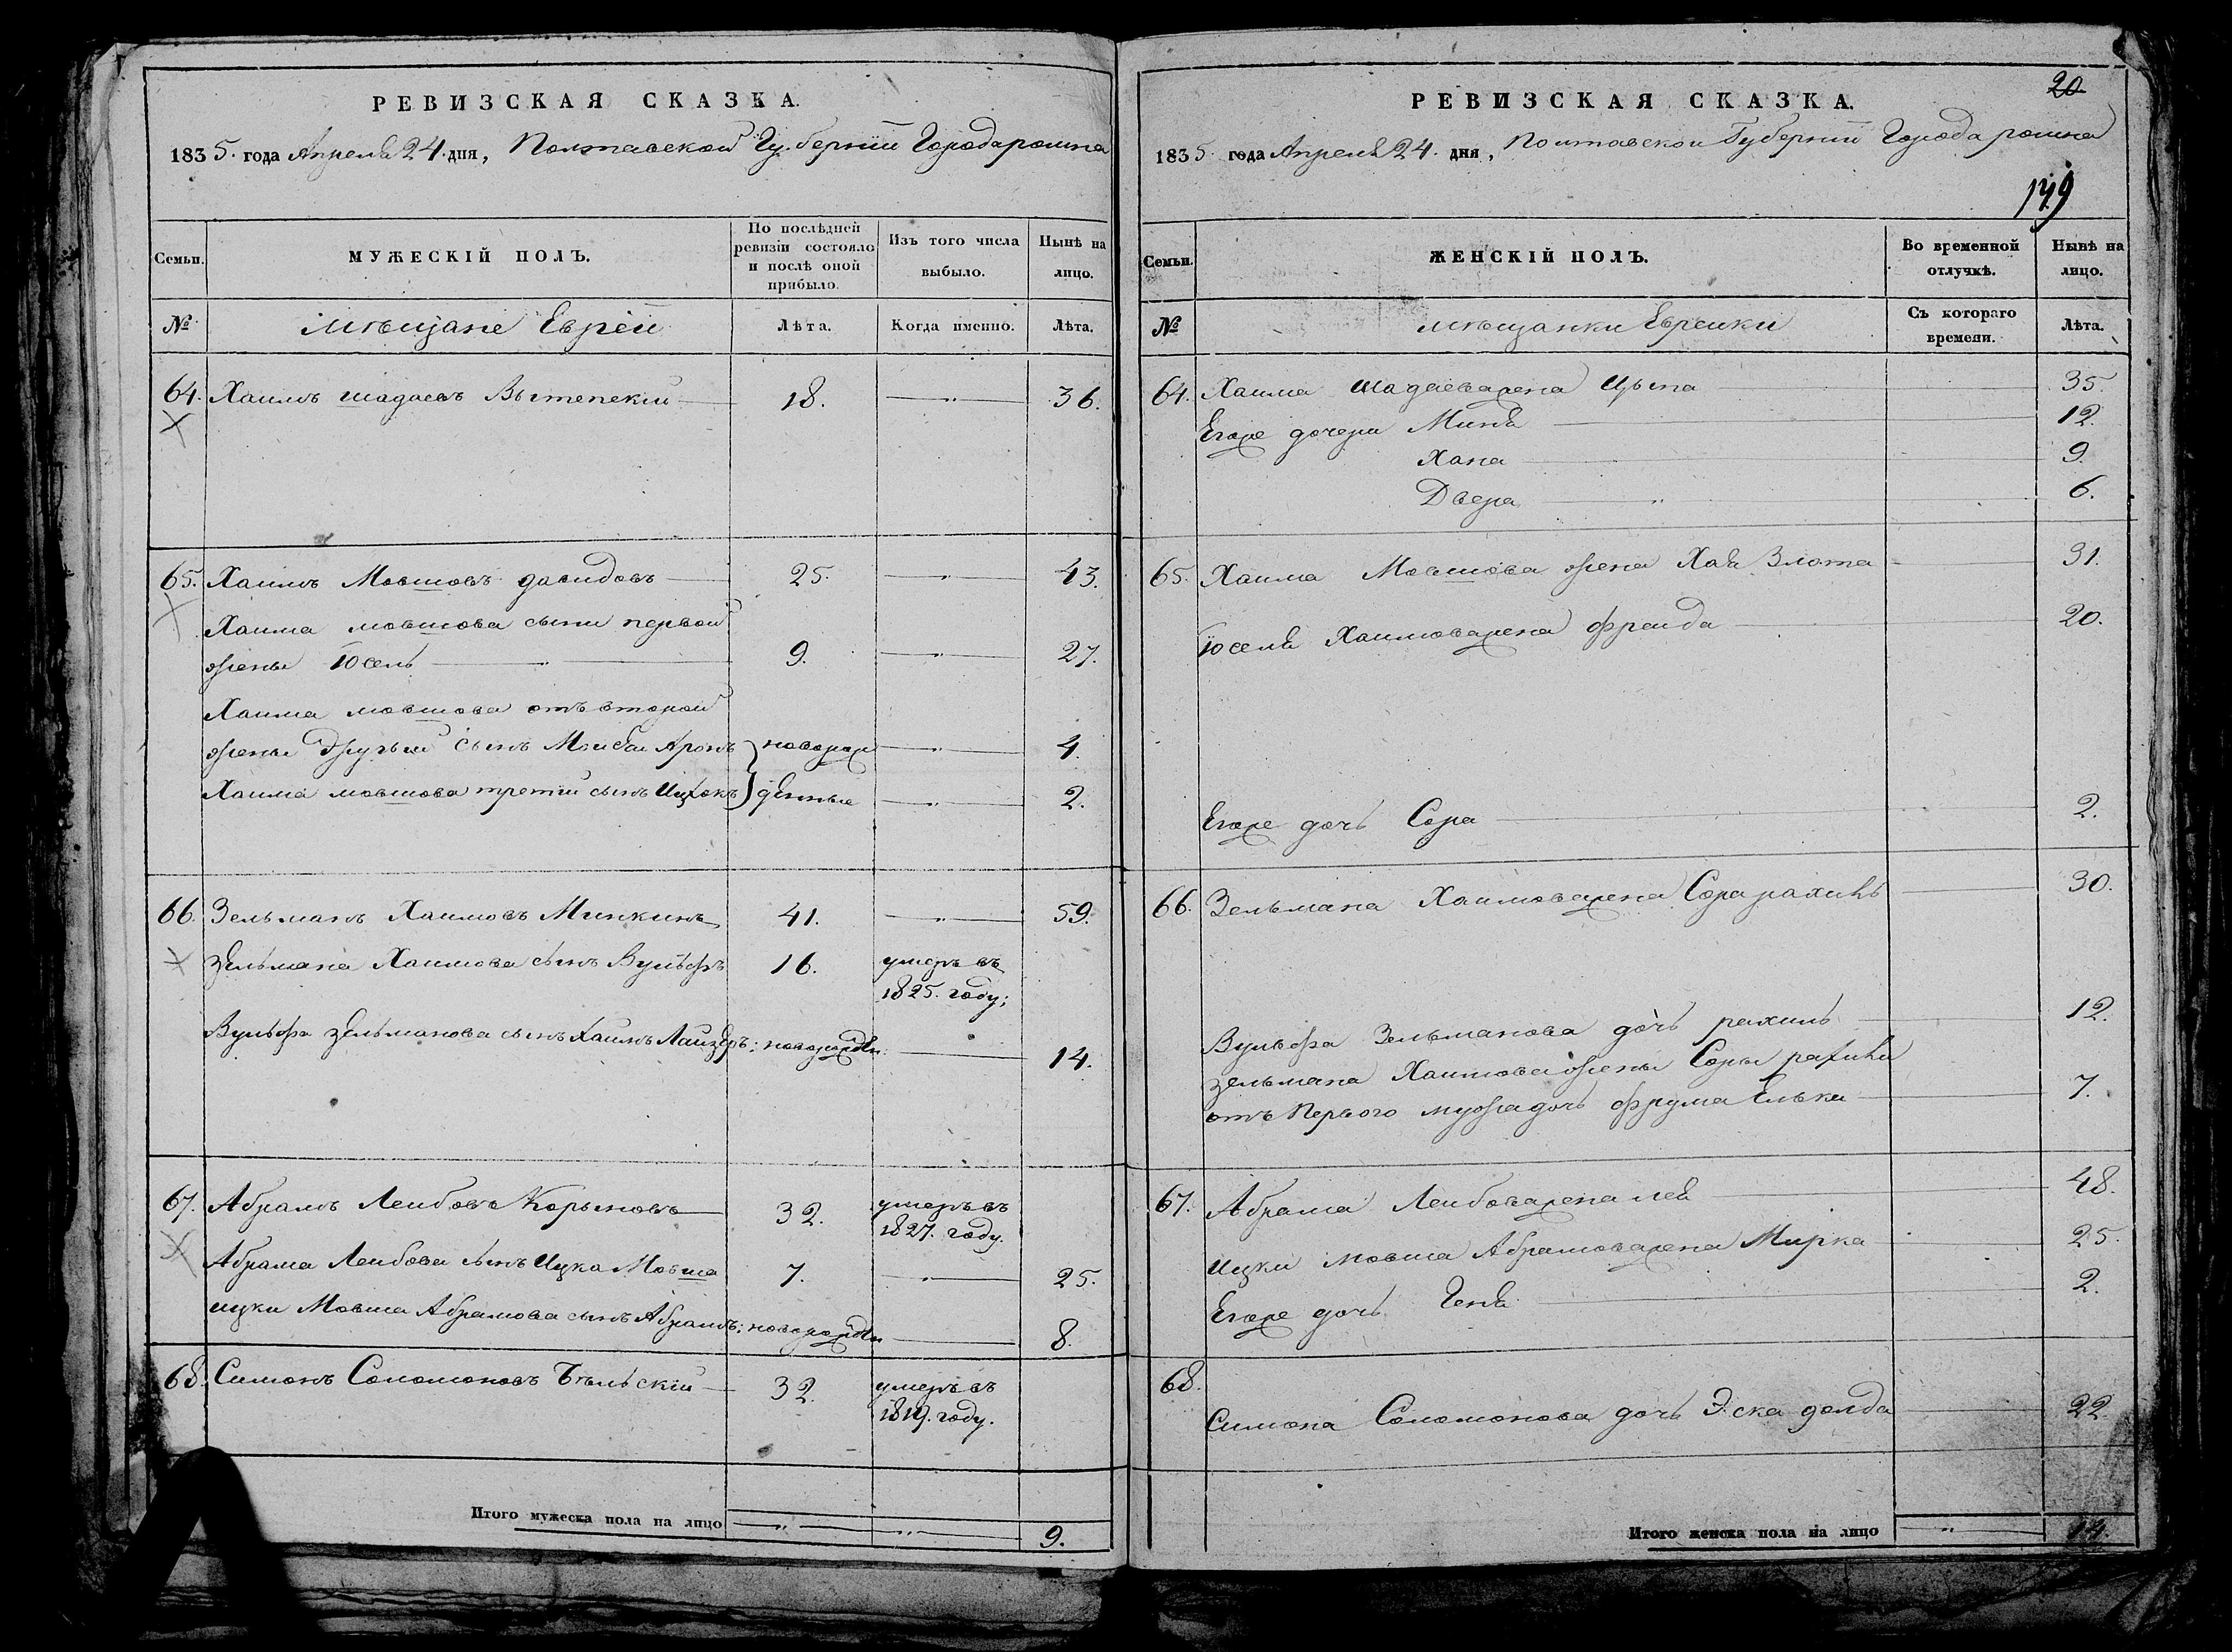 РЕВИЗСКАЯ СКАЗКА.
1835. года Апреля 24. дня, Полтавской Губернии Города ромна
Семьи.
МУЖЕСКІЙ ПОЛЪ.
По послѣдней ревизіи состояло и послѣ оной прибыло.
Изъ того числа выбыло.
Нынѣ на лицо.
№
мѣщане Евреи
Лѣта.
Когда именно.
Лѣта.
64. Хаимъ шадаевъ 18. 36.
65. Хаимъ Мовшовъ давидовъ 25. 43.
Хаима мовшова сынъ первой
жены Юсель 9. 27.
Хаима мовшова отъ второй
жены другии сынъ Аронъ новорож 4.
Хаима мовшова третии сынъ Ицхокъ денные 2.
66. Зельманъ Хаимовъ Минкинъ 41. 59.
Зельмана Хаимова сынъ Вульфъ 16. умеръ въ
1825. году;
Вульфа Зельманова сынъ Хаимъ Лаизеръ: новорожден 14.
67. Абрамъ Леибовъ Корыновъ 32. умеръ въ
1827. году.
Абрама Леибова сынъ Ицка Мовша 7. 25.
ицки Мовши Абрамова сынъ Абрамъ: новорожден 8.
68. Симонъ Соломоновъ Бѣльскій 32. умеръ въ
1819. году.
Итого мужеска пола на лицо 9.
20
РЕВИЗСКАЯ СКАЗКА.
1835 года Апреля 24. дня, Полтавскои Губернии Города ромна
149
Семьи.
ЖЕНСКІЙ ПОЛЪ.
Во временной отлучкѣ.
Нынѣ на лицо.
№
мѣщанки Евреики
Съ котораго времени.
Лѣта.
64. Хаима шадаева жена Цыпа 35.
Егоже дочери Миня 12.
Хана 9.
Двера 6.
65. Хаима Мовшова жена Хая Злота 31.
Юселя Хаимова жена фреида 20.
Егоже дочь Сора 2.
66. Зельмана Хаимова жена Сора рахиль 30.
Вульфа Зельманова дочь рахиль 12.
зельмана Хаимова жены Соры рахили
отъ Первого мужа дочь фрума Елька 7.
67. Абрама Леибова жена лея 48.
ицки мовши Абрамова жена Мирка 25.
Егоже дочь Геня 2.
68.
Симона Соломонова дочь Эска долда 22.
Итого женска пола на лицо 14.